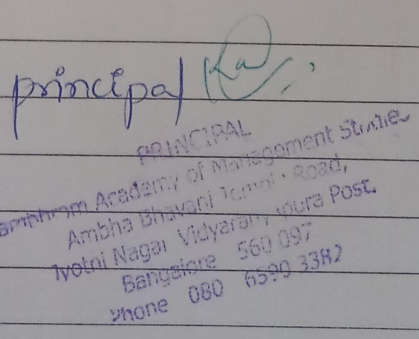 principal
PRINCIPAL
Academy of Management Studies
Ambha Bhavani Road,
Jyothi Nagar Vidyaranyapura Post.
Bangalore 560 097
Phone 080 6590 3382